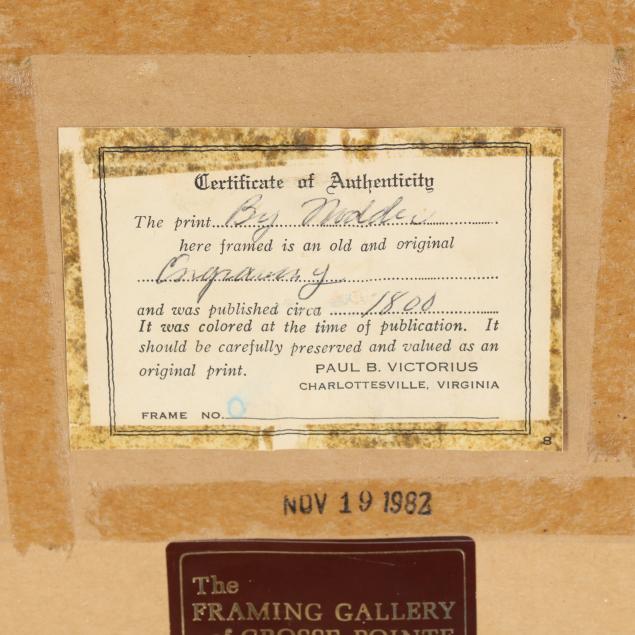 Certificate of Authenticity
The print By Nodder
here framed is an old and original
Engraving
and was published circa 1800
It was colored at the time of publication. It
should be carefully preserved and valued as an
original print. PAUL B. VICTORIUS
CHARLOTTESVILLE, VIRGINIA
FRAME NO. 0
8
NOV 19 1982
The
FRAMING GALLERY
of GROSSE POINTE